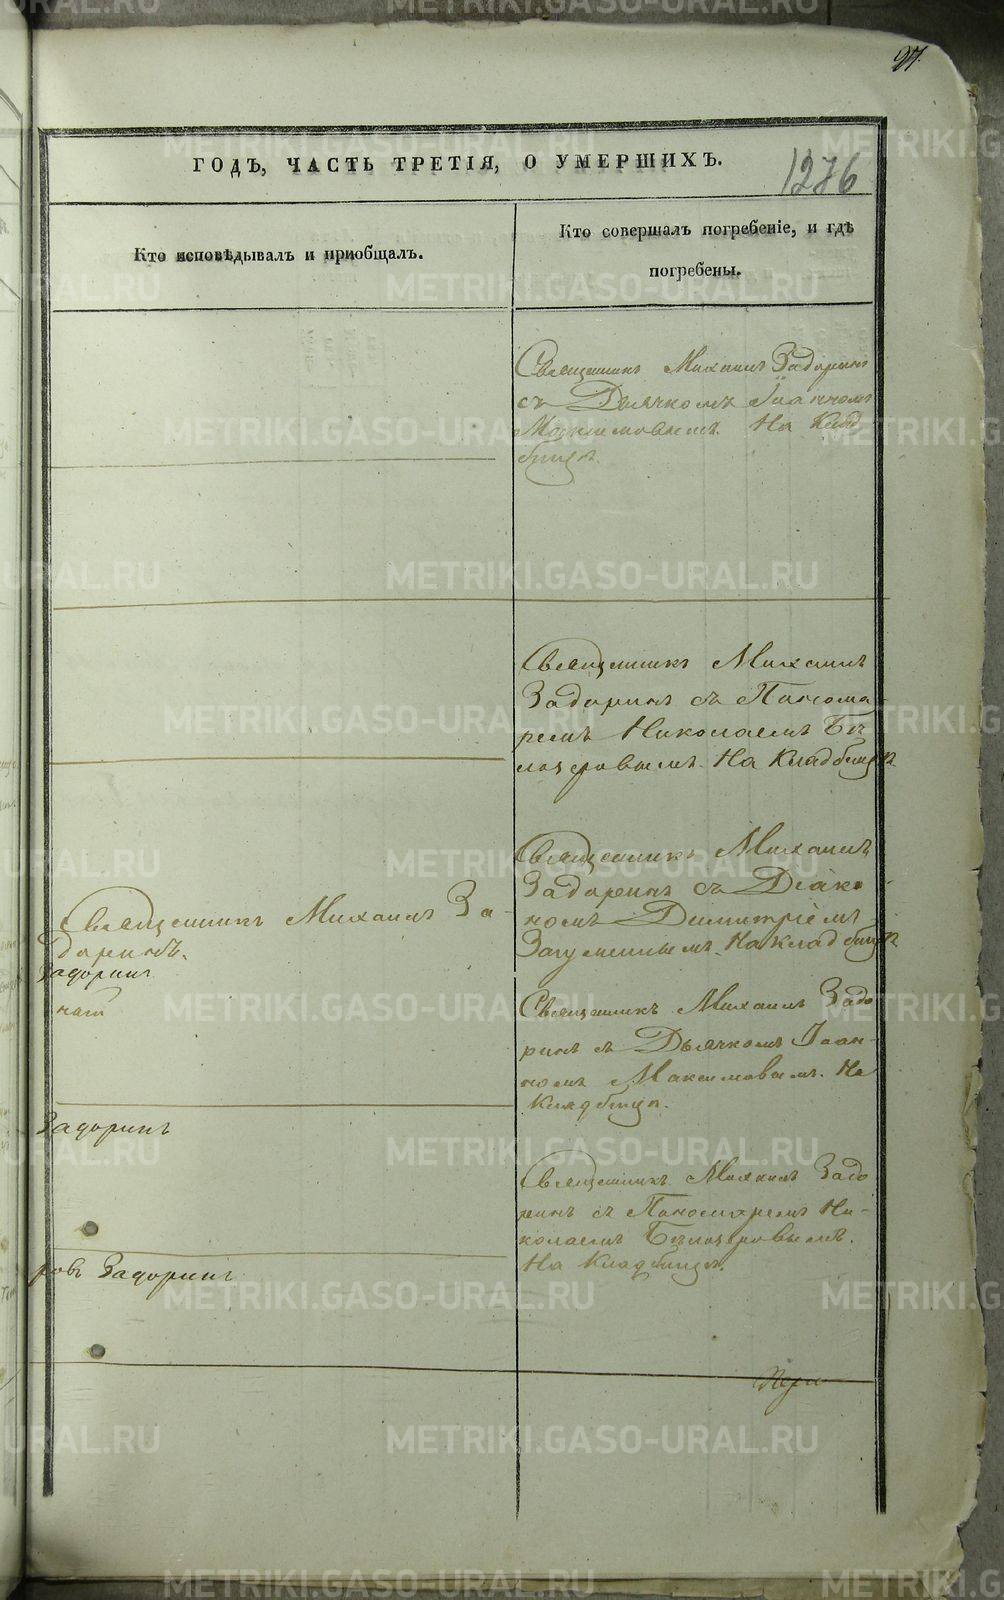 97.
ГОДЪ, ЧАСТЬ ТРЕТІЯ, О УМЕРШИХЪ.
1276
Кто исповѣдывалъ и пріобщалъ.
Кто совершалъ погребеніе, и гдѣ
погребены.
Священникъ Михаилъ Задоринъ
съ Дьячкомъ Іоанномъ
Максимовымъ. На Клад
бищѣ.
Священникъ Михаилъ
Задоринъ съ Понома
ремъ Николаемъ Бѣ
лозеровымъ. На Кладбищѣ
Священникъ Михаилъ За-
доринъ.
Задоринъ
Священникъ Михаилъ
Задоринъ съ Діако
номъ Димитріемъ
Загуменнымъ. На кладбищѣ
Священникъ Михаилъ Задо
ринъ съ Дьячкомъ Іоан-
номъ Максимовымъ. На
Кладбищѣ.
Задоринъ
Священникъ Михаилъ Задо
ринъ съ Пономаремъ Ни-
колаемъ Бѣлозеровымъ.
На Кладбищѣ.
ровъ Задоринъ
METRIKI.GASO-URAL.RU